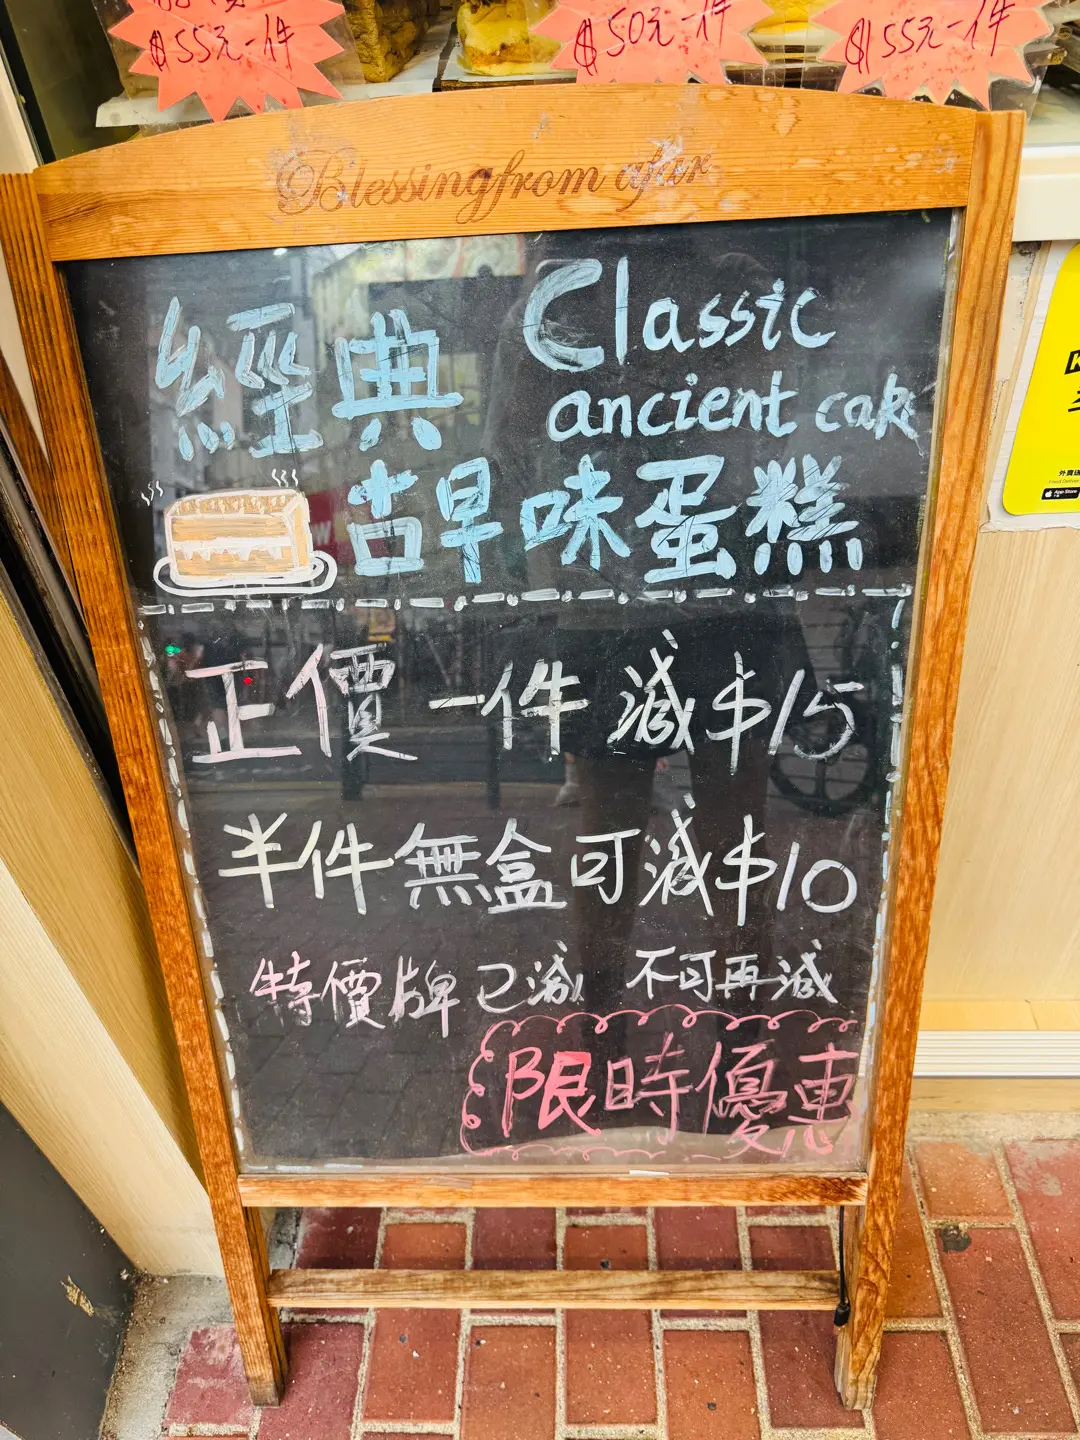 $55元一件
$50元一件
$55元一件
Blessing from afar
經典
Classic
ancient cake
古早味蛋糕
正價一件減$15
半件無盒可減$10
特價牌已減 不可再減
限時優惠
App Store